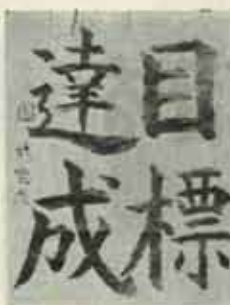 目標
達成